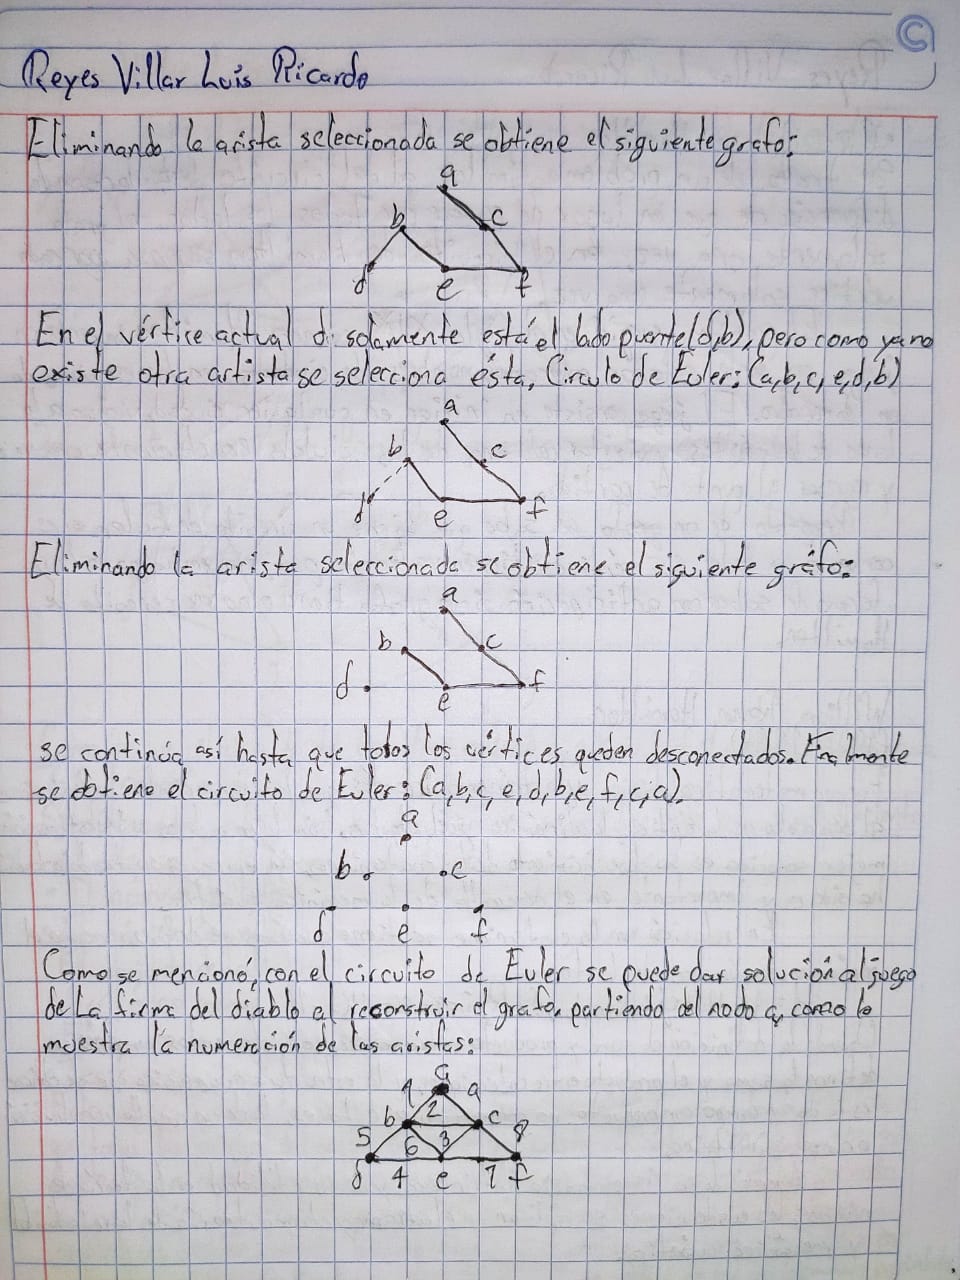 Reyes Villar Luis Ricardo
Eliminando la arista seleccionada se obtiene el siguiente grafo:
a
b c
d e f
En el vértice actual d solamente está el lado puente (d,b), pero como ya no
existe otra artista se selecciona ésta, Circulo de Euler: (a,b,c,e,d,b)
a
b c
d e f
Eliminando la arista seleccionada se obtiene el siguiente gráfo:
a
b c
d e f
se continúa así hasta que todos los vértices queden desconectados. Finalmente
se obtiene el circuito de Euler: (a,b,c,e,d,b,e,f,c,a).
a
b c
d e f
Como se mencionó, con el circuito de Euler se puede dar solución al juego
de La firma del diablo al reconstruir el grafo, partiendo del nodo a, como lo
muestra la numeración de las aristas:
a
1 9
b 2 c
5 6 3 8
d 4 e 7 f